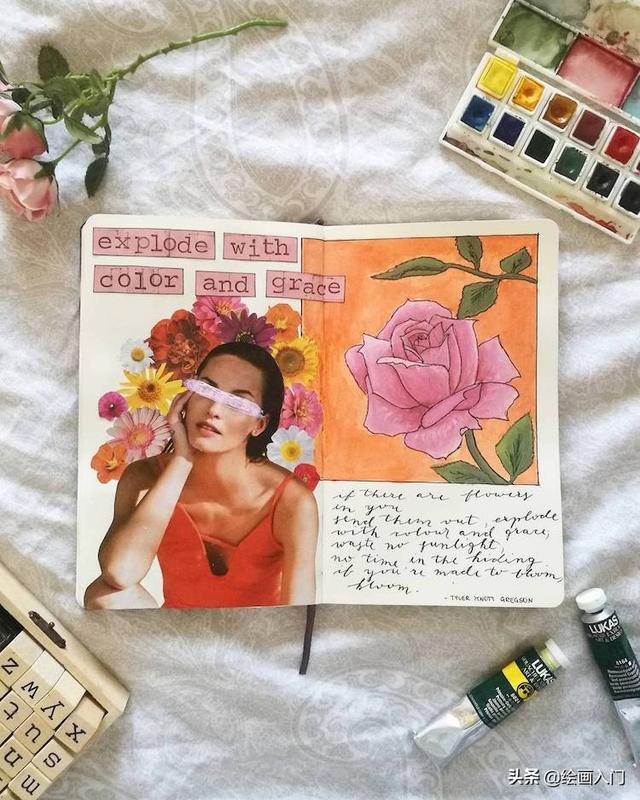 explode with
color and grace
if there are flowers
in you
send them out, explode
with colour and grace,
waste no sunlight,
no time in the hiding.
if you're made to bloom,
bloom.
- TYLER KNOTT GREGSON
LUKAS
LUKAS
z
y
w
x
u
t
s
n
m
头条 @绘画入门